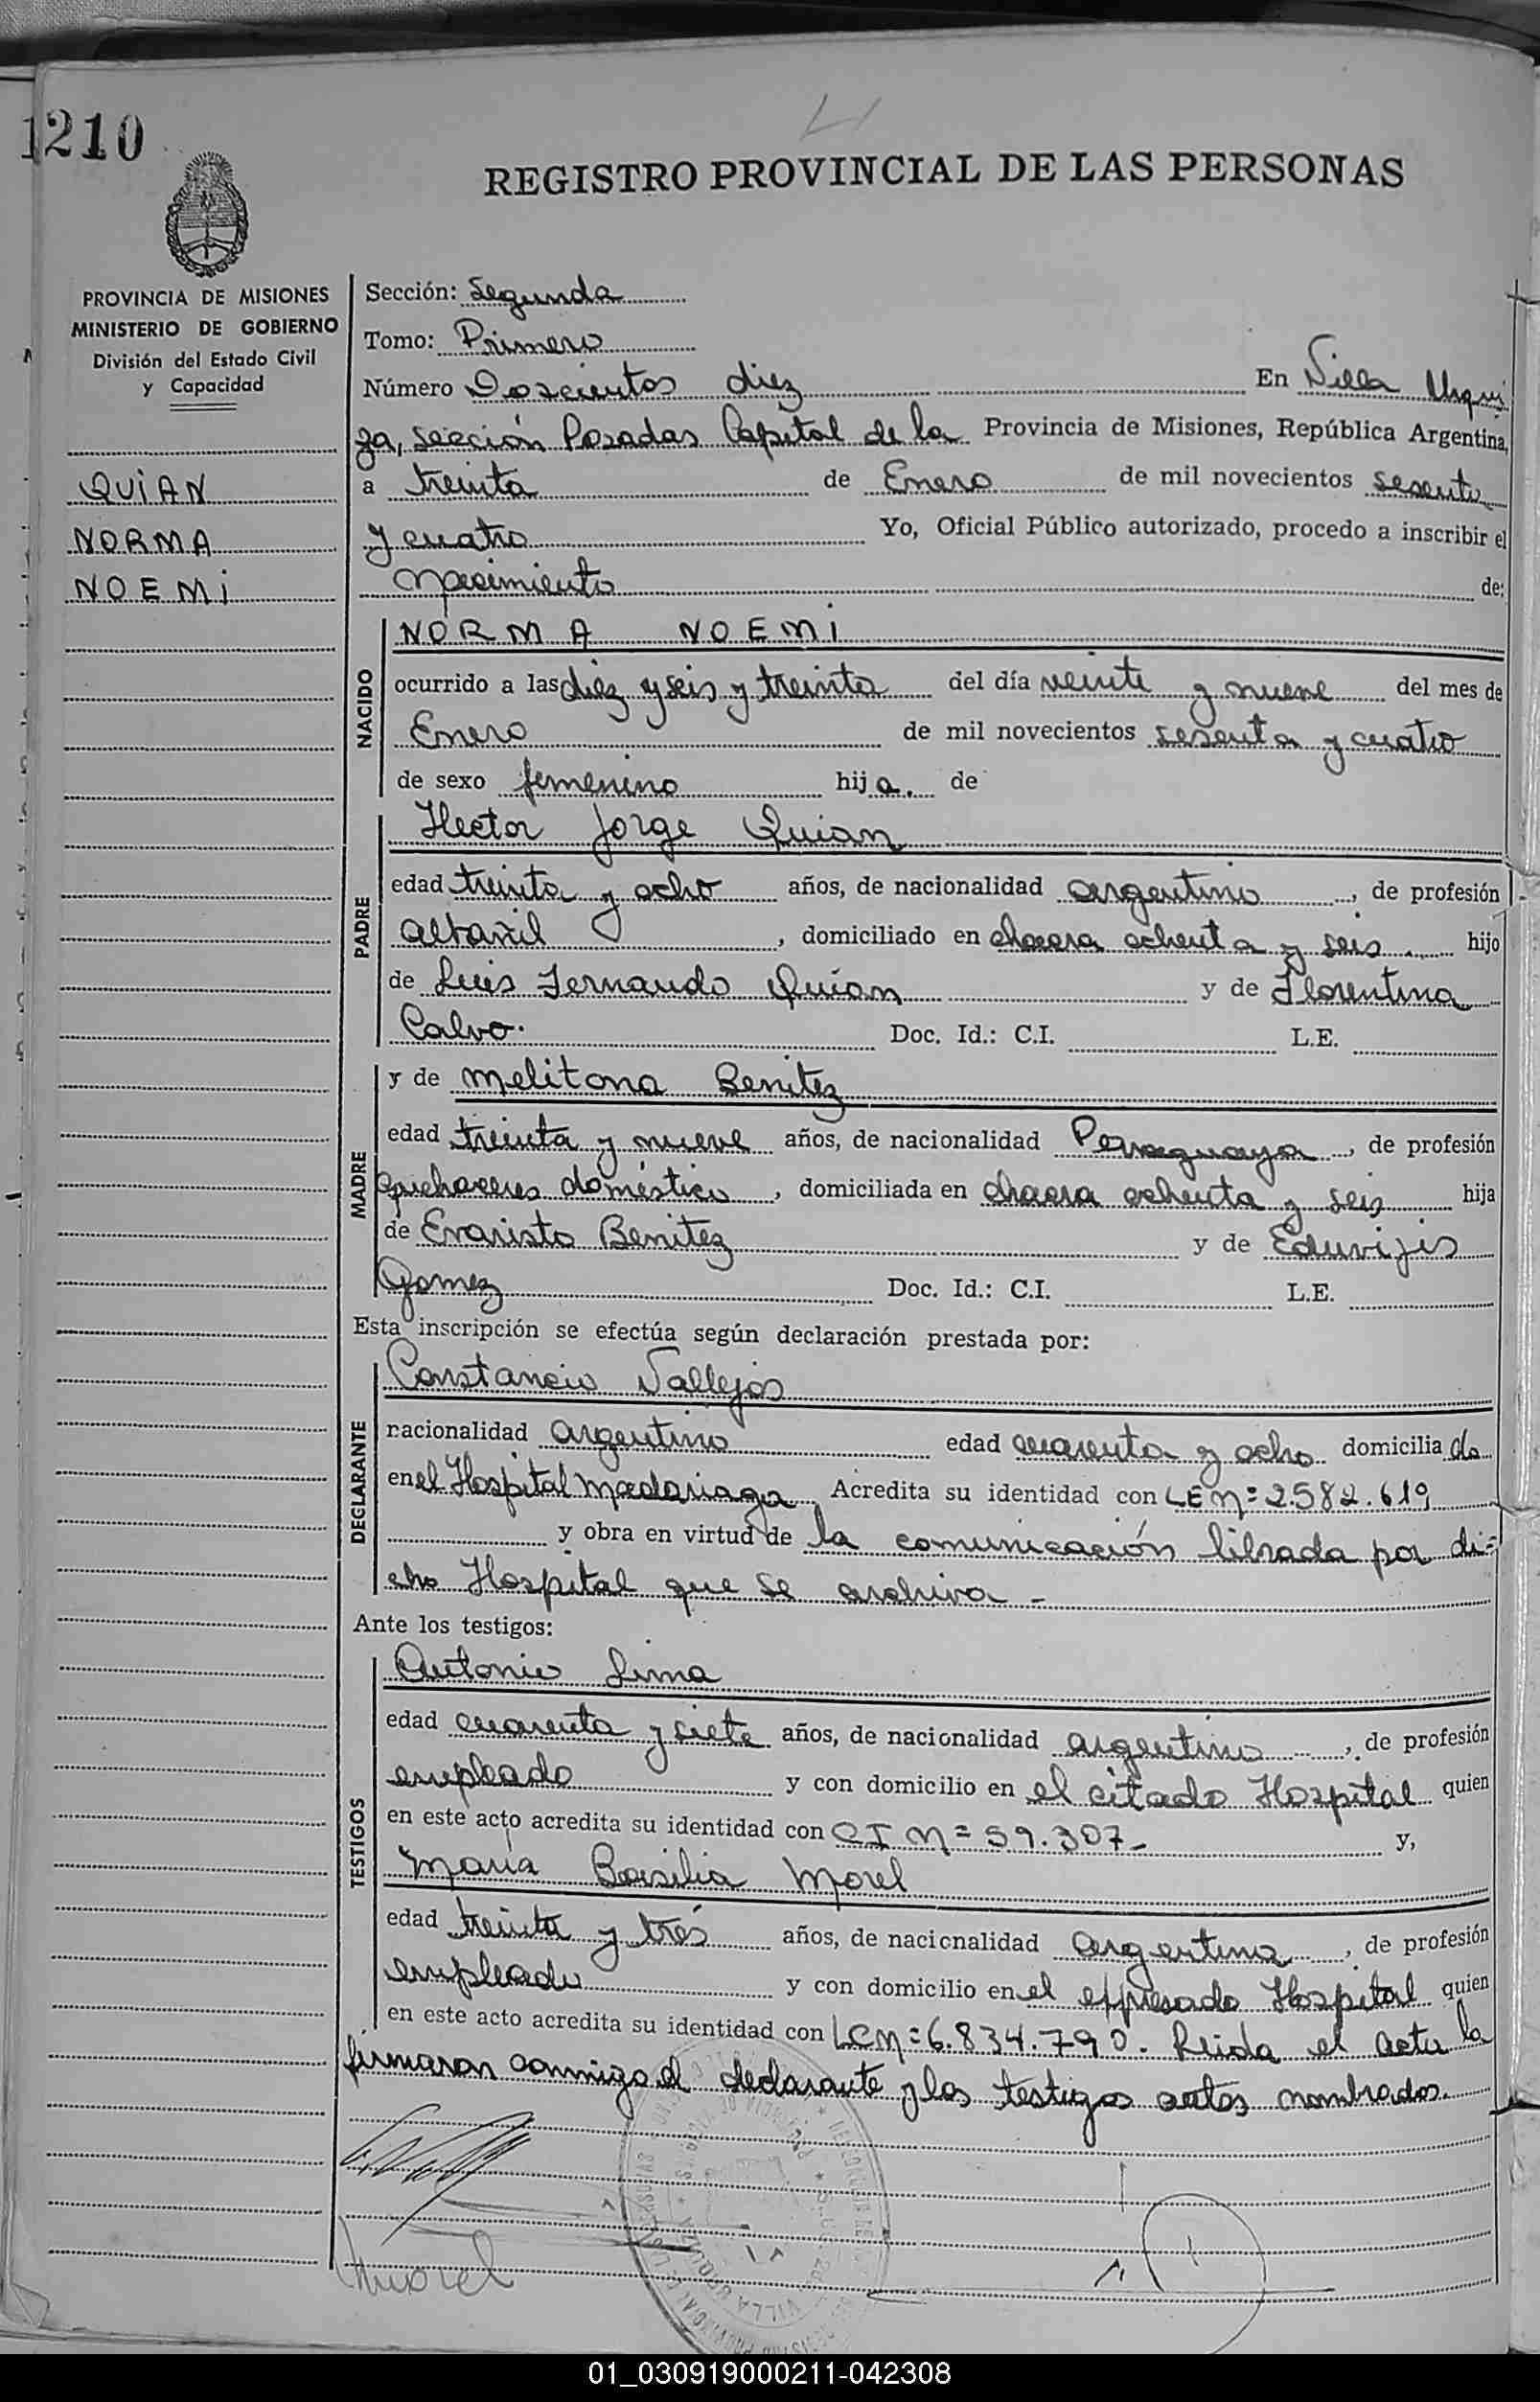 1210
REGISTRO PROVINCIAL DE LAS PERSONAS
PROVINCIA DE MISIONES
MINISTERIO DE GOBIERNO
División del Estado Civil
y Capacidad
QUIAN
NORMA
NOEMI
Sección: Segunda
Tomo: Primero
Número Doscientos diez En Villa Urqui
za, sección Posadas Capital de la Provincia de Misiones, República Argentina,
a treinta de Enero de mil novecientos sesenta
y cuatro Yo, Oficial Público autorizado, procedo a inscribir el
nacimiento de:
NACIDO
NORMA NOEMI
ocurrido a las diez y seis y treinta del día veinte y nueve del mes de
Enero de mil novecientos sesenta y cuatro
de sexo femenino hija. de
PADRE
Hector Jorge Quian
edad treinta y ocho años, de nacionalidad argentino, de profesión
albañil, domiciliado en chacra ochenta y seis hijo
de Luis Fernando Quian y de Florentina
Calvo. Doc. Id.: C.I. L.E.
MADRE
y de Melitona Benitez
edad treinta y nueve años, de nacionalidad Paraguaya, de profesión
quehaceres doméstico, domiciliada en chacra ochenta y seis hija
de Evaristo Benitez y de Eduvijis
Gomez Doc. Id.: C.I. L.E.
Esta inscripción se efectúa según declaración prestada por:
DECLARANTE
Constancio Vallejos
nacionalidad argentino edad cuarenta y ocho domiciliado
en el Hospital Madariaga Acredita su identidad con LE Nº 2.582.619
y obra en virtud de la comunicación librada por di=
cho Hospital que se archiva -
Ante los testigos:
TESTIGOS
Antonio Lima
edad cuarenta y siete años, de nacionalidad argentino, de profesión
empleado y con domicilio en el citado Hospital quien
en este acto acredita su identidad con CI Nº 59.307- y,
Maria Basilia Morel
edad treinta y tres años, de nacionalidad argentina, de profesión
empleada y con domicilio en el expresado Hospital quien
en este acto acredita su identidad con LC Nº 6.834.790. Leida el acta la
firmaron conmigo el declarante y los testigos antes nombrados.
Morel
VILLA URQUIZA
01_030919000211-042308